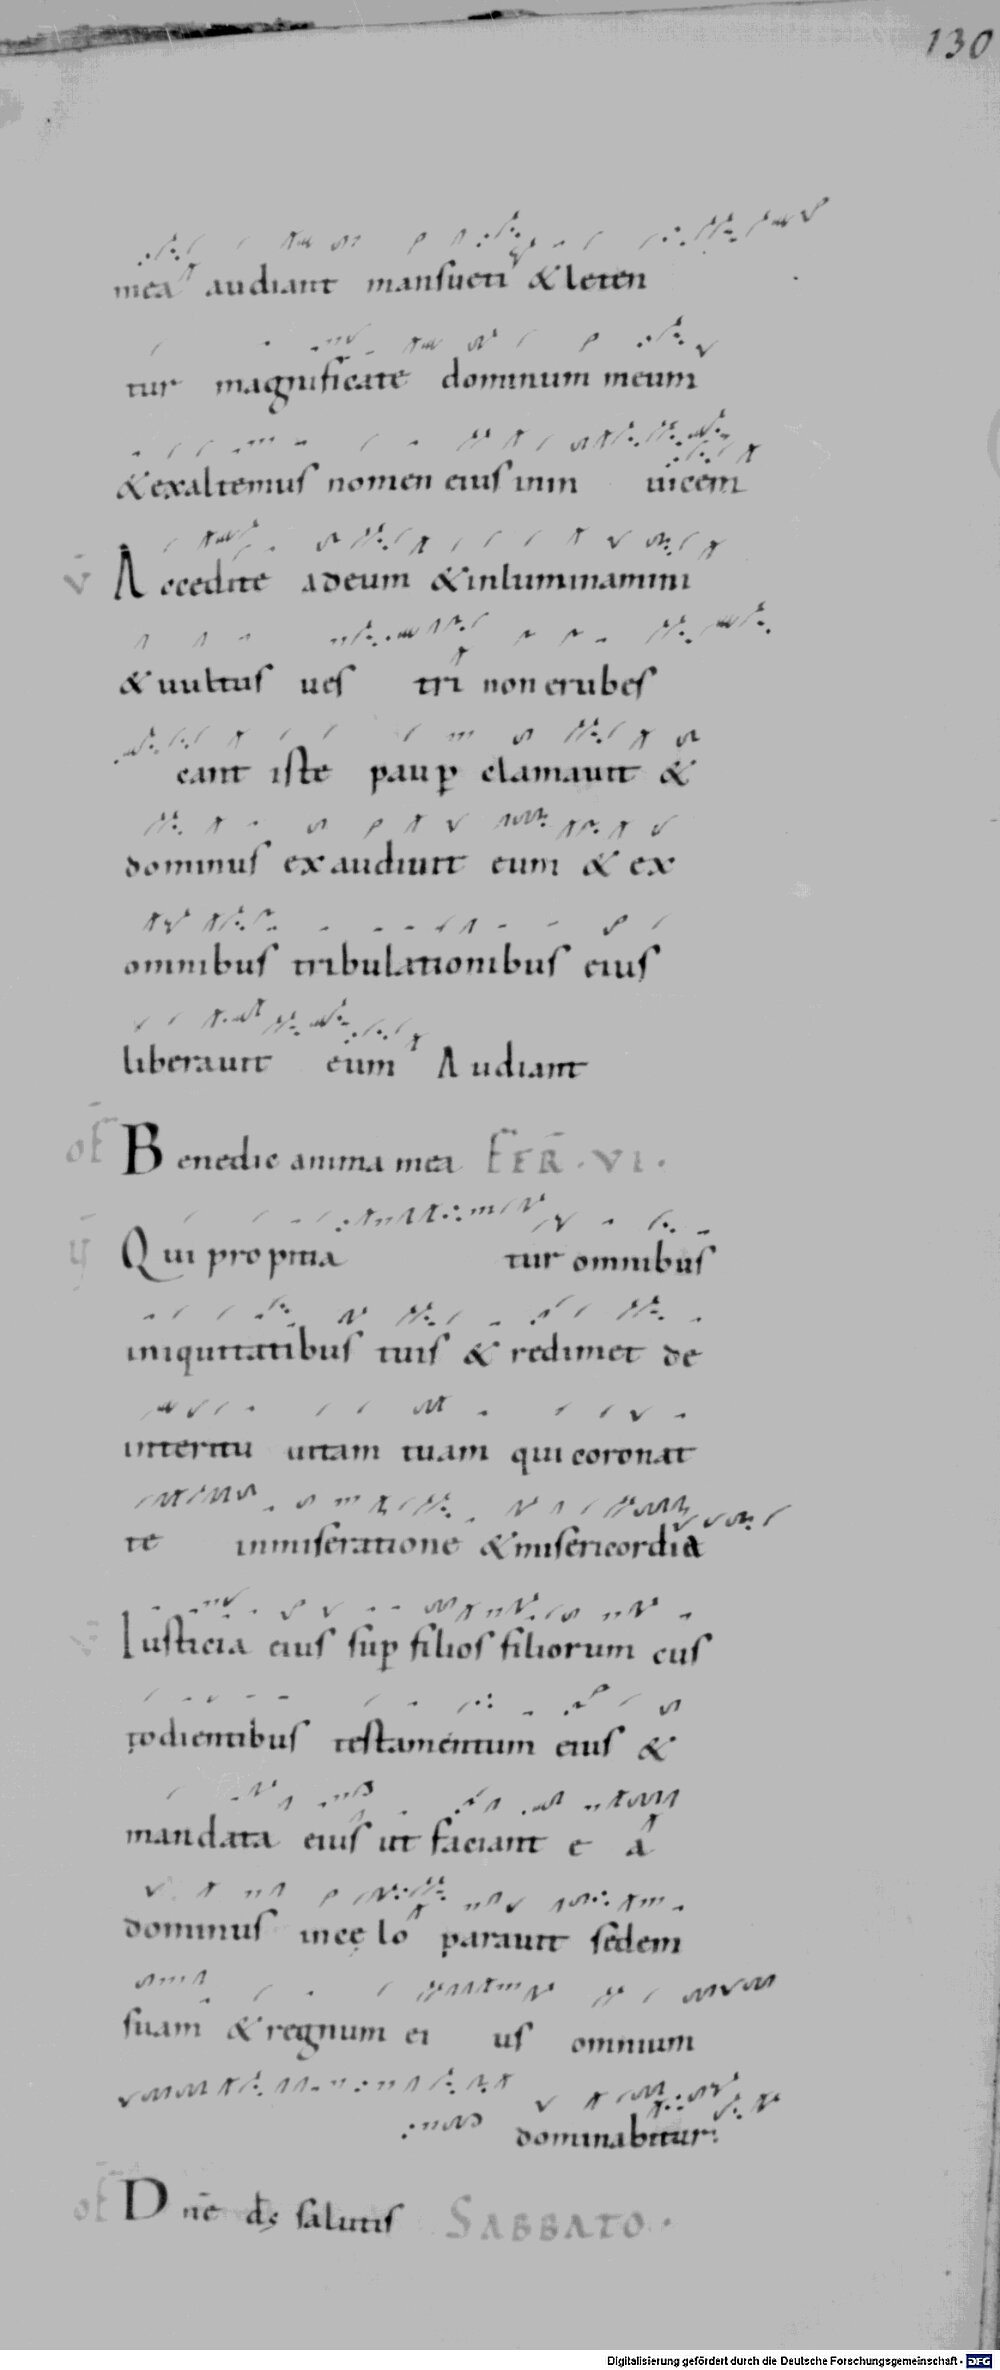 130
mea audiant mansueti & leten
tur magnificate dominum meum
& exaltemus nomen eius inin uicem
V Accedite adeum & inluminamini
& uultus ues tri non erubes
cant iste paup clamauit &
dominus exaudiuit eum & ex
omnibus tribulationibus eius
liberauit eum Audiant
of Benedic anima mea FER · VI ·
Qui propitia tur omnibus
iniquitatibus tuis & redimet de
interitu uitam tuam qui coronat
te inmiseratione & misericordia
V Iusticia eius sup filios filiorum cus
todientibus testamentum eius &
mandata eius ut faciant e a
dominus incę lo parauit sedem
suam & regnum ei us omnium
dominabitur:
of Dne ds salutis SABBATO ·
Digitalisierung gefördert durch die Deutsche Forschungsgemeinschaft - DFG